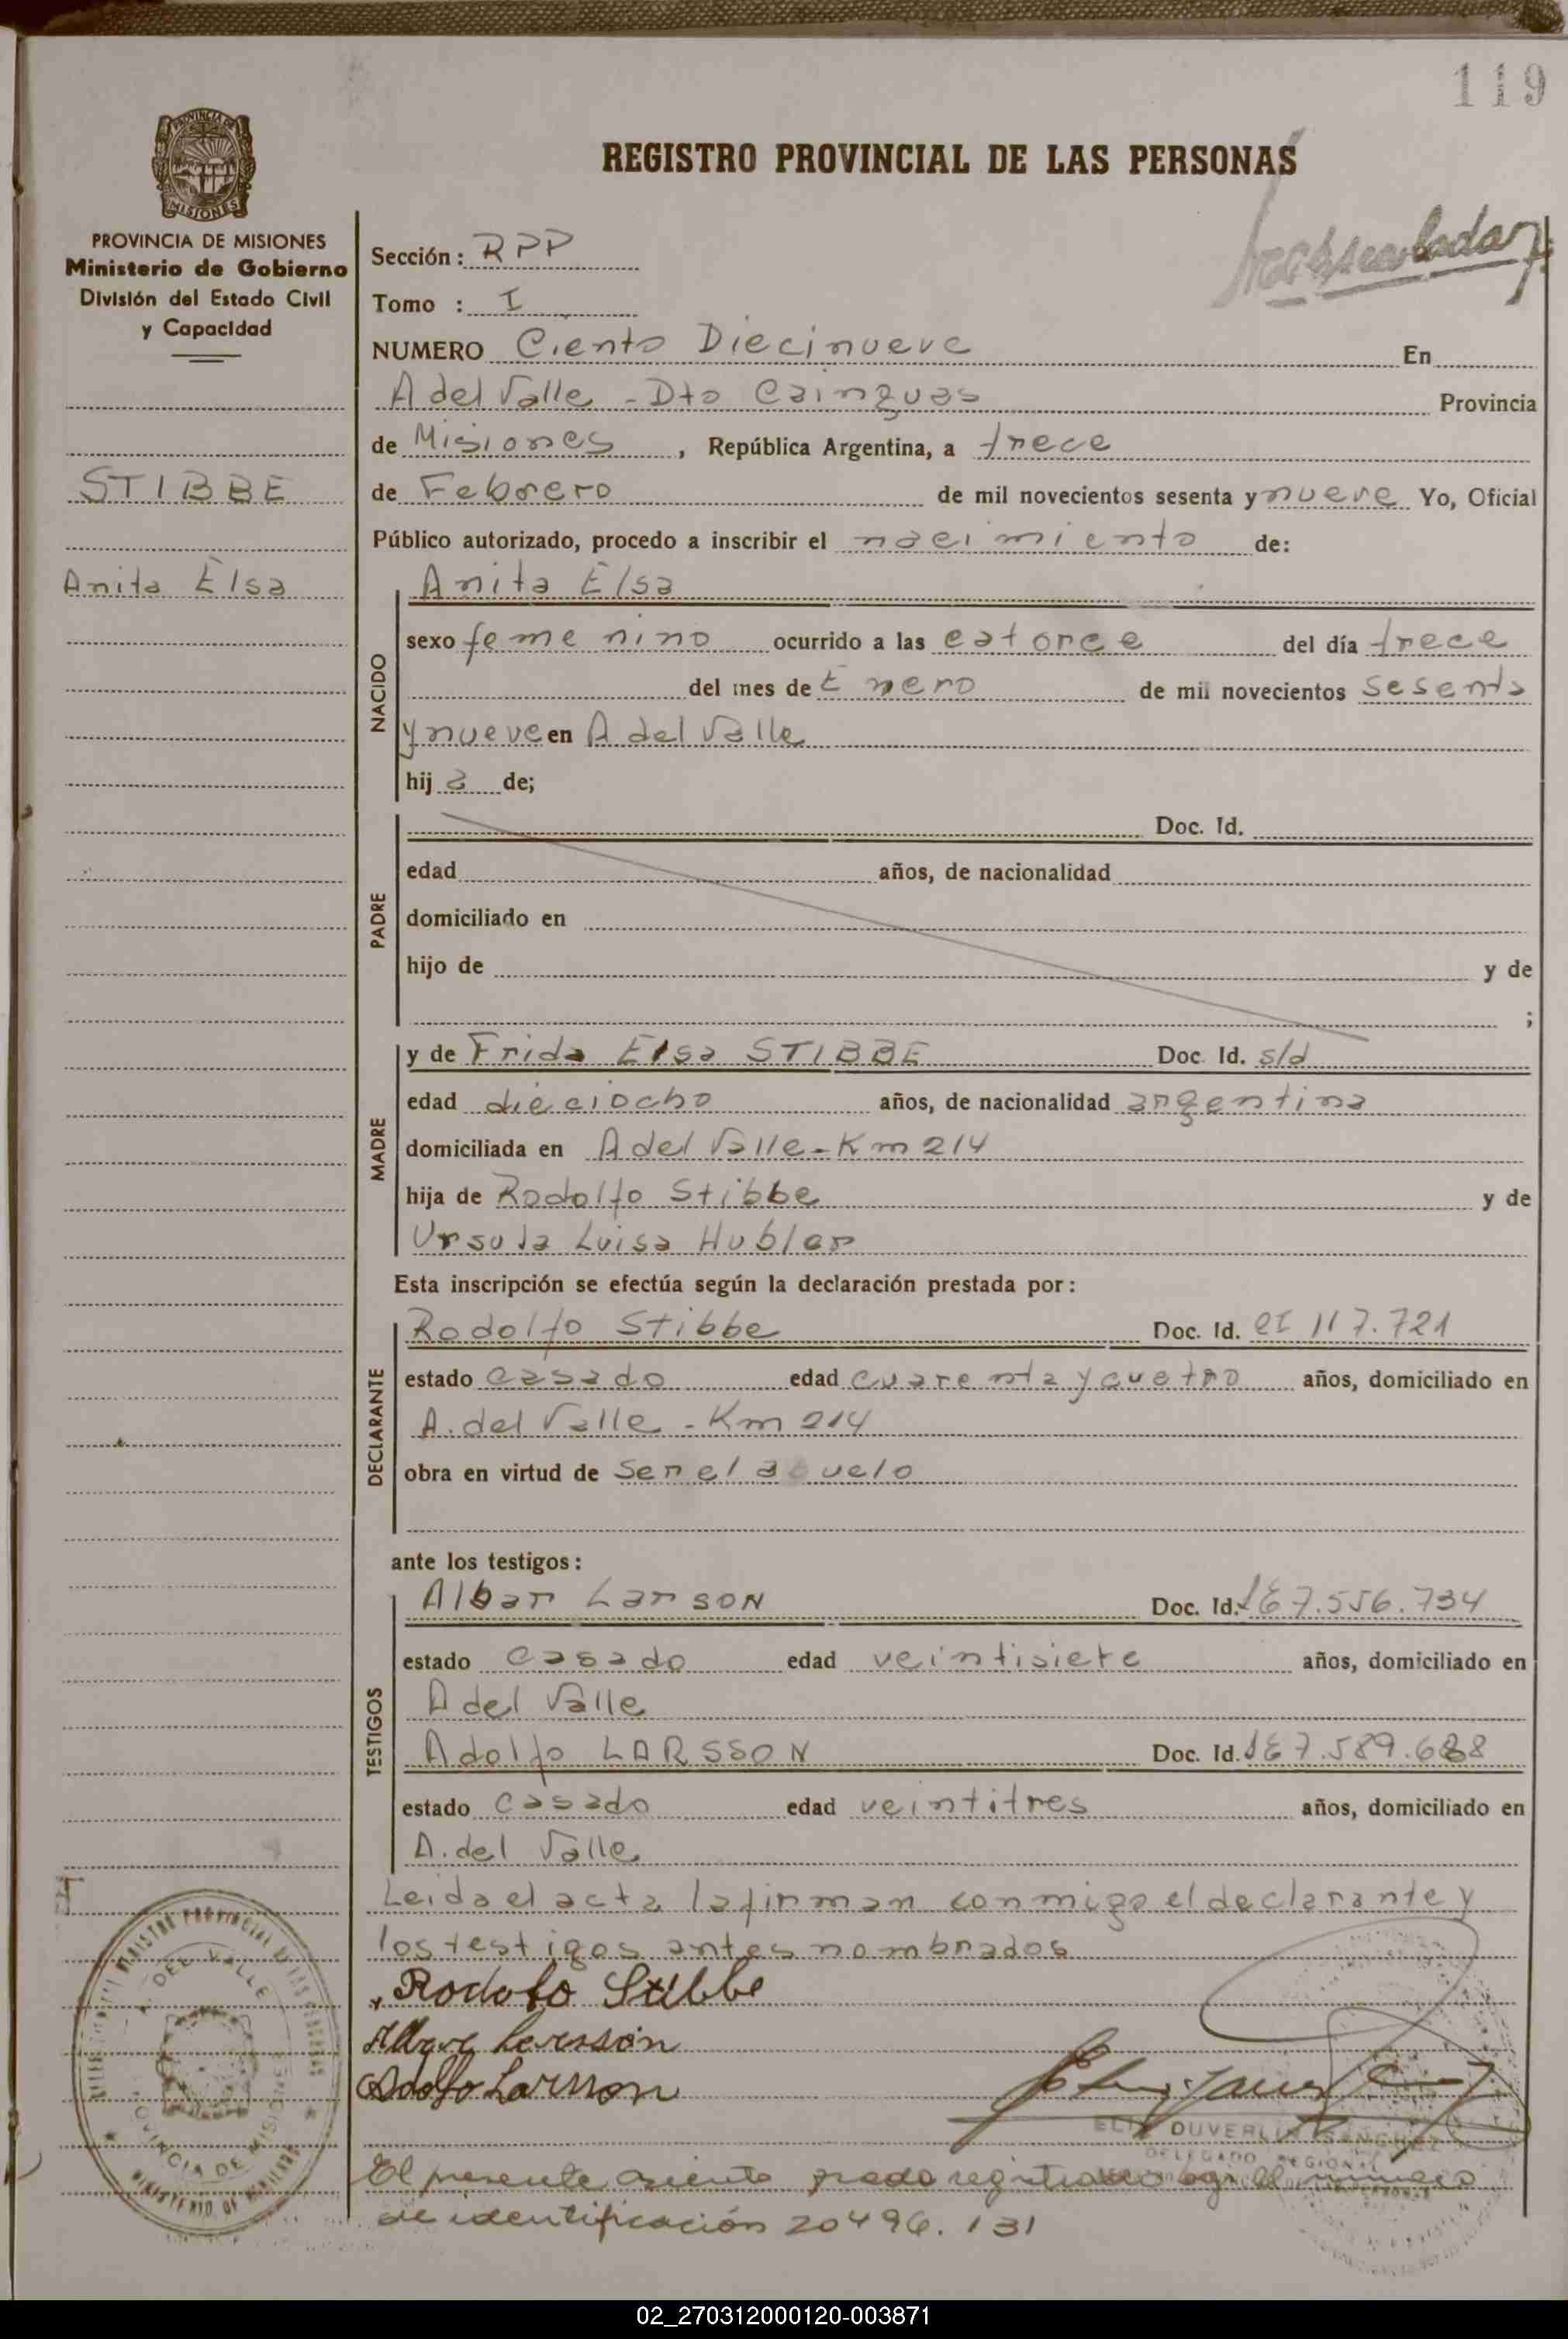 119
REGISTRO PROVINCIAL DE LAS PERSONAS
PROVINCIA DE MISIONES
MISIONES
PROVINCIA DE MISIONES
Ministerio de Gobierno
División del Estado Civil
y Capacidad
STIBBE
Anita Elsa
Sección: RPP
Tomo : I
NUMERO Ciento Diecinueve En
A del Valle - Dto Cainguas Provincia
de Misiones, República Argentina, a trece
de Febrero de mil novecientos sesenta y nueve Yo, Oficial
Público autorizado, procedo a inscribir el nacimiento de:
NACIDO
Anita Elsa
sexo femenino ocurrido a las catorce del día trece
del mes de Enero de mil novecientos sesenta
y nueve en A del Valle
hij a de;
PADRE
Doc. Id.
edad años, de nacionalidad
domiciliado en
hijo de y de
;
MADRE
y de Frida Elsa STIBBE Doc. Id. s/d
edad dieciocho años, de nacionalidad argentina
domiciliada en A del Valle - Km 214
hija de Rodolfo Stibbe y de
Ursula Luisa Hubler
Esta inscripción se efectúa según la declaración prestada por:
DECLARANTE
Rodolfo Stibbe Doc. Id. CI 117.721
estado casado edad cuarenta y cuatro años, domiciliado en
A. del Valle - Km 214
obra en virtud de ser el abuelo
ante los testigos:
TESTIGOS
Albar Larson Doc. Id. LE 7.556.734
estado casado edad veintisiete años, domiciliado en
A del Valle
Adolfo LARSSON Doc. Id. LE 7.589.688
estado casado edad veintitres años, domiciliado en
A. del Valle
Leida el acta la firman conmigo el declarante y
los testigos antes nombrados
Rodolfo Stibbe
Larsson
Adolfo Larsson
DUVERLI SANCHEZ
DELEGADO REGIONAL
A. DEL VALLE
PROVINCIA DE MISIONES
El presente asiento quedo registrado bajo el numero
de identificación 20496.131
02_270312000120-003871